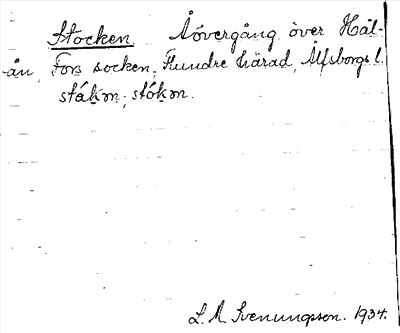 Stocken Åövergång över Häl-
ån, Fors socken, Flundre härad, Älfsborgs l.
ståkm; stókm.
L. M. Svenungsson. 1934.